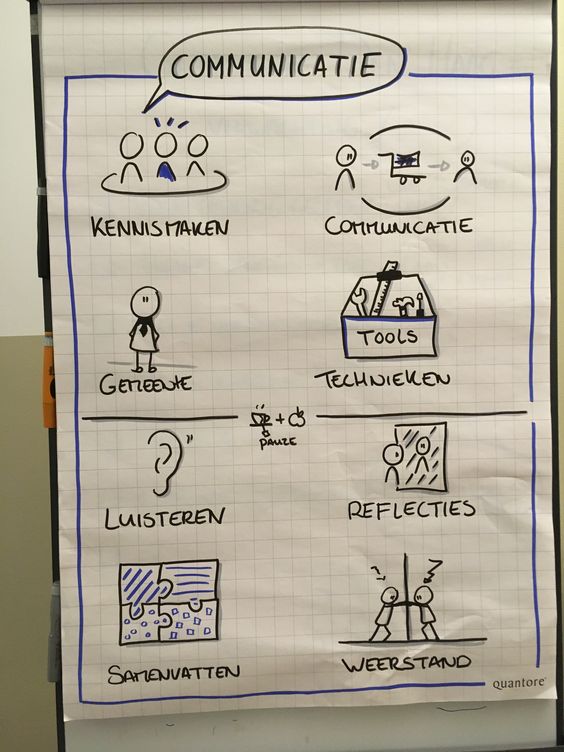 COMMUNICATIE
KENNISMAKEN
COMMUNICATIE
TOOLS
GEMEENTE
TECHNIEKEN
+
PAUZE
LUISTEREN
REFLECTIES
SAMENVATTEN
WEERSTAND
quantore